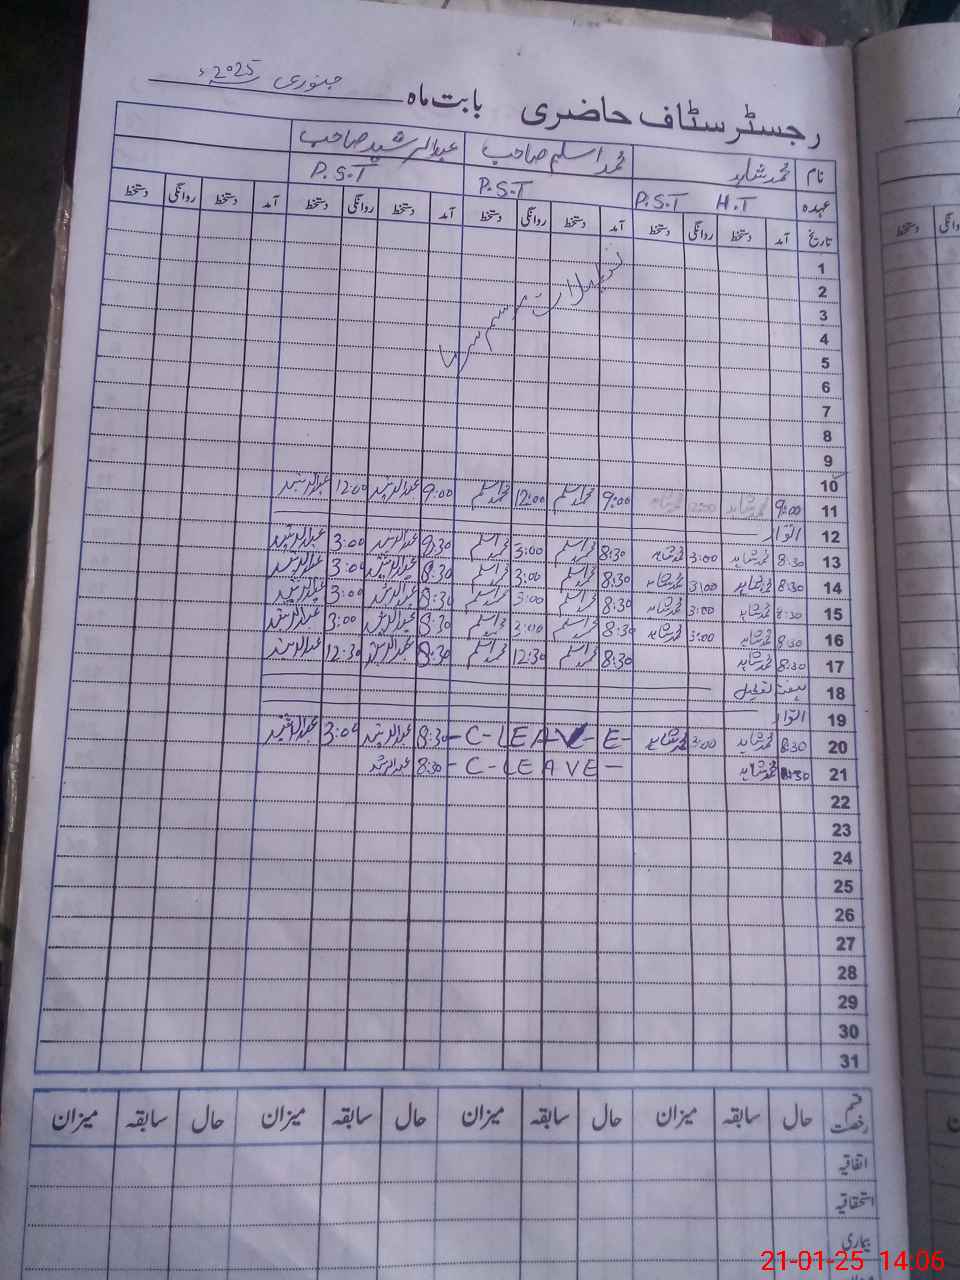 رجسٹر سٹاف حاضری بابت ماہ جنوری 2025ء
نام محمد شاہد محمد اسلم صاحب عبدالرشید صاحب
عہدہ P.S.T H.T P.S.T P.S.T
تاریخ آمد دستخط روانگی دستخط آمد دستخط روانگی دستخط آمد دستخط روانگی دستخط آمد دستخط روانگی دستخط
1
2
تعطیلات موسم سرما
3
4
5
6
7
8
9
10
11 9:00 محمد شاہد 12:00 محمد شاہد 9:00 محمد اسلم 12:00 محمد اسلم 9:00 عبدالرشید 12:00 عبدالرشید
12 اتوار
13 8:30 محمد شاہد 3:00 محمد شاہد 8:30 محمد اسلم 3:00 محمد اسلم 8:30 عبدالرشید 3:00 عبدالرشید
14 8:30 محمد شاہد 3:00 محمد شاہد 8:30 محمد اسلم 3:00 محمد اسلم 8:30 عبدالرشید 3:00 عبدالرشید
15 8:30 محمد شاہد 3:00 محمد شاہد 8:30 محمد اسلم 3:00 محمد اسلم 8:30 عبدالرشید 3:00 عبدالرشید
16 8:30 محمد شاہد 3:00 محمد شاہد 8:30 محمد اسلم 3:00 محمد اسلم 8:30 عبدالرشید 3:00 عبدالرشید
17 8:30 محمد شاہد 8:30 محمد اسلم 12:30 محمد اسلم 8:30 عبدالرشید 12:30 عبدالرشید
18 ہفتہ تعطیل
19 اتوار
20 8:30 محمد شاہد 3:00 محمد شاہد - C - LEAVE - 8:30 عبدالرشید 3:00 عبدالرشید
21 8:30 محمد شاہد - C - LEAVE - 8:30 عبدالرشید
22
23
24
25
26
27
28
29
30
31
قسم رخصت حال سابقہ میزان حال سابقہ میزان حال سابقہ میزان حال سابقہ میزان
اتفاقیہ
استحقاقیہ
بیماری
21-01-25 14:06